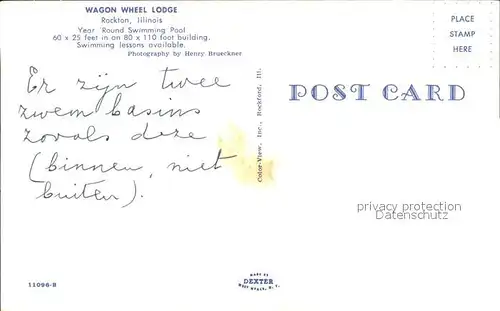 WAGON WHEEL LODGE
Rockton, Illinois
Year 'Round Swimming Pool
60 x 25 feet in an 80 x 110 foot building.
Swimming lessons available.
Photography by Henry Brueckner
PLACE
STAMP
HERE
Er zijn twee
zwem basins
zoals deze
(binnen, niet
buiten).
Color-View, Inc., Rockford, Ill.
POST CARD
privacy protection
Datenschutz
11096-B
MADE BY
DEXTER
WEST NYACK, N. Y.